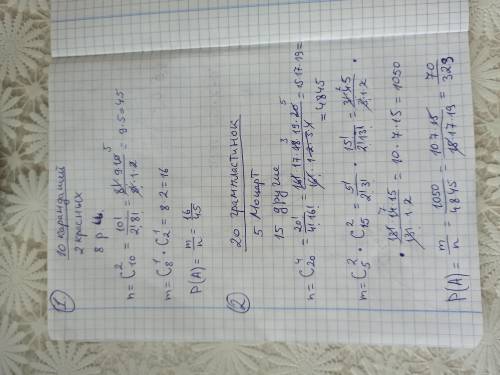 ①
10 карандашей
2 красных
8 р
n = C₁₀² = 10!/2!8! = 8!·9·10/8!·1·2 = 9·5=45
m = C₈¹ · C₂¹ = 8·2 = 16
P(A) = m/n = 16/45
②
20 грампластинок
5 Моцарт
15 другие
n = C₂₀⁴ = 20!/4!·16! = 16!·17·18·19·20/16!·1·2·3·4 = 15·17·19 =
= 4845
m = C₅² · C₁₅² = 5!/2!3! · 15!/2!13! = 3!·4·5/3!·1·2 ·
· 13!·14·15/13!·1·2 = 10·7·15 = 1050
P(A) = m/n = 1050/4845 = 10·7·15/15·17·19 = 70/323